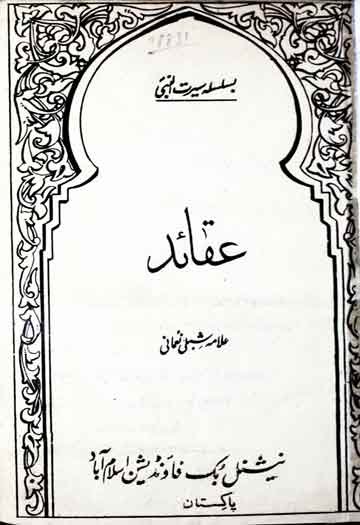 بسلسلہ سیرت النبیؐ
عقائد
علامہ شبلی نعمانی
نیشنل بک فاؤنڈیشن اسلام آباد
پاکستان